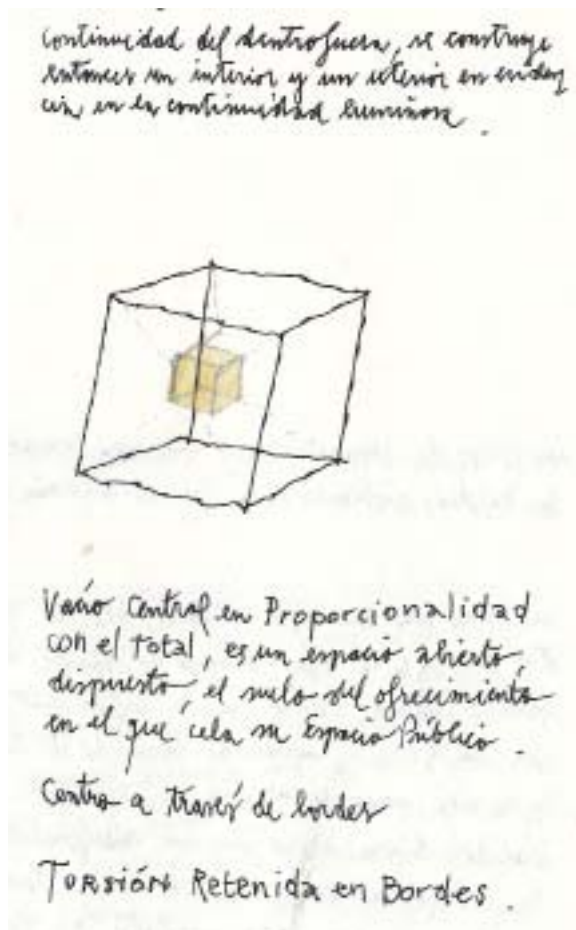 continuidad del dentrofuera, se construye
entonces un interior y un exterior en eviden
cia, en la continuidad luminosa.
Vacío Central en Proporcionalidad
con el total, es un espacio abierto,
dispuesto, el suelo del ofrecimiento
en el que cela su Espacio Público.
Centro a través de bordes
Torsión Retenida en Bordes.